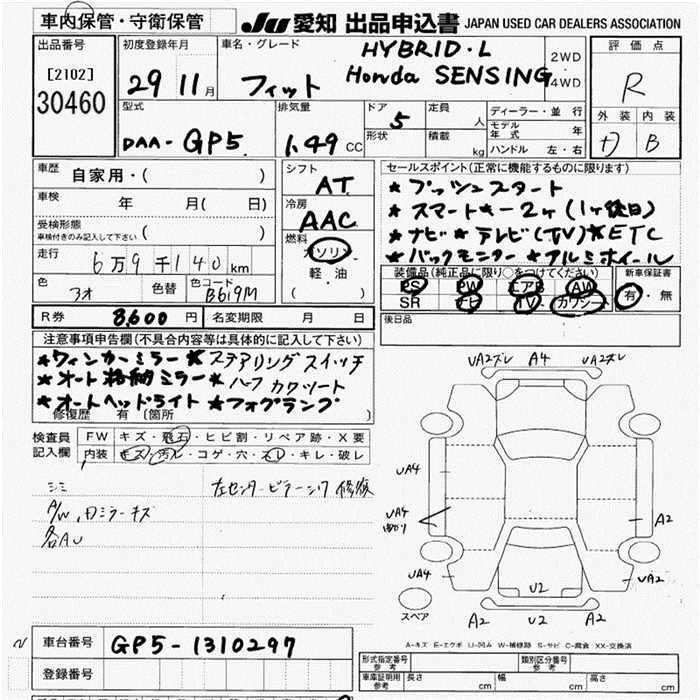 車内保管・守衛保管
JU 愛知 出品申込書 JAPAN USED CAR DEALERS ASSOCIATION
出品番号
[2102]
30460
初度登録年月
29 11月
車名・グレード
フィット
HYBRID・L
Honda SENSING
2WD
・
4WD
評価点
R
外装 内装
B
型式
DAA-GP5
排気量
1.49 CC
ドア
5
形状
定員 人
積載 kg
ディーラー・並行
モデル年式 年
ハンドル 左・右
車歴
自家用・( )
車検 年 月( 日)
受検形態
車検付きのみ記入して下さい ( )
走行
6万9千140km
色 色替 色コード
B619M
シフト
AT
冷房
AAC
燃料
ガソリン
軽・油
( )
セールスポイント(正常に機能するものに限ります)
★プッシュスタート
★スマートキー2ヶ(1ヶ後日)
★ナビ★テレビ(TV)★ETC
★バックモニター★アルミホイール
装備品(純正品に限り○をつけてください) 新車保証書
PS PW エアB AW
SR ナビ TV カワシート
有・無
R券 8,600円 名変期限 月 日
後日品
注意事項申告欄(不具合内容等は具体的に記入して下さい)
★ウィンカーミラー★ステアリングスイッチ
★オート格納ミラー★ハーフカワシート
★オートヘッドライト★フォグランプ
修復歴 有 〔箇所 〕
検査員
記入欄
FW キズ・飛石・ヒビ割・リペア跡・X要
内装 キズ・汚レ・コゲ・穴・スレ・キレ・破レ
シミ
左センターピラーシワ 修復
A/W,ドミラーキズ
各AU
UA2ズレ A4 UA2ズレ
UA4
UA4
A2
UA4 U2 UA2
スペア
A2 U2 A2
A-キズ E-エクボ U-凹み W-補修跡 S-サビ C-腐食 XX-交換済
車台番号 GP5-1310297
登録番号
形式指定番号
参考
類別区分番号
参考
車庫証明用
参考
長さ cm 幅 cm 高さ cm